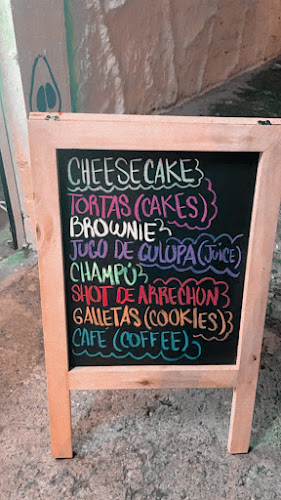 CHEESECAKE
TORTAS (CAKES)
BROWNIE
JUGO DE GULUPA (JUICE)
CHAMPÚ
SHOT DE ARRECHON
GALLETAS (COOKIES)
CAFE (COFFEE)